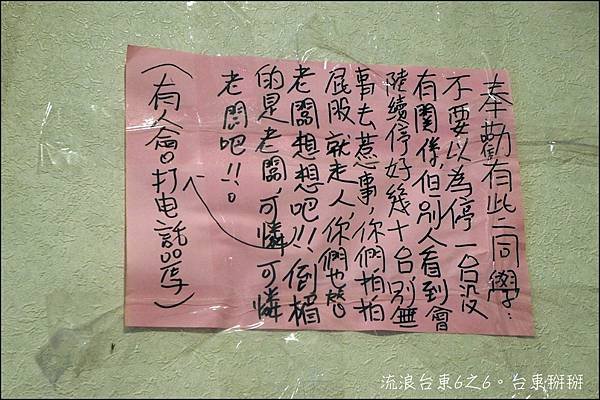 奉勸有些同學:
不要以為停一台沒
有関係,但別人看到會
陸續停好幾十台,別無
事去惹事,你們拍拍
屁股就走人,你們也替
老闆想想吧!!倒楣
的是老闆,可憐可憐
老闆吧!!。
(有人會打电話)
流浪台東6之6。台東掰掰